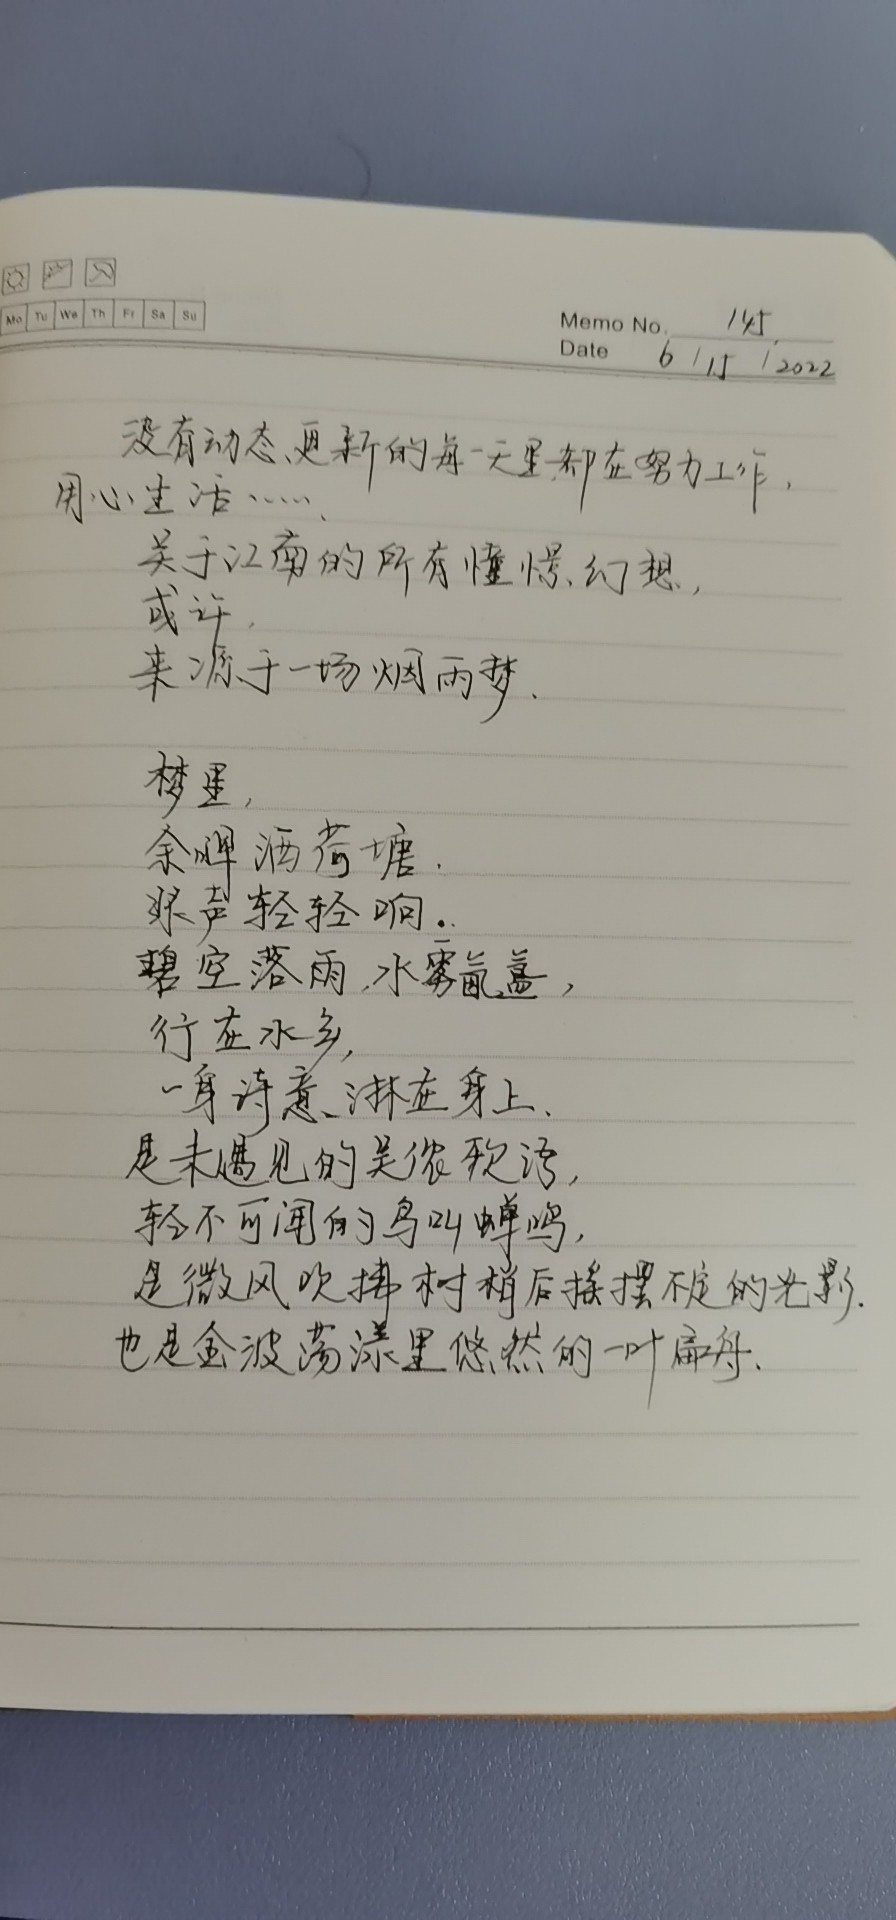 Mo Tu We Th Fr Sa Su
Memo No. 145
Date 6 / 15 / 2022
没有动态更新的每一天里都在努力工作，
用心生活……
关于江南的所有憧憬、幻想，
或许，
来源于一场烟雨梦.
梦里，
余晖洒荷塘.
声轻轻响.
碧空落雨,水雾氤氲，
行在水乡,
一身诗意、淋在身上.
是未遇见的吴侬软语，
轻不可闻的鸟叫蝉鸣，
是微风吹拂树梢后摇摆不定的光影.
也是金波荡漾里悠然的一叶扁舟.